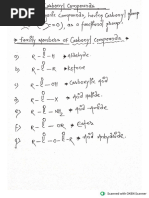 Carbonyl Compounds
Compounds, having Carbonyl group
(>C=O), as a functional group.
* Family Members of Carbonyl Compounds *
R-C-H → Aldehyde
R-C-R → Ketone
R-C-OH → Carboxylic acid
R-C-X → Acid halide
R-C-NH2 → Acid amide
R-C-OR → Ester
R-C-O-C-R → Acid anhydride
CS Scanned with CamScanner